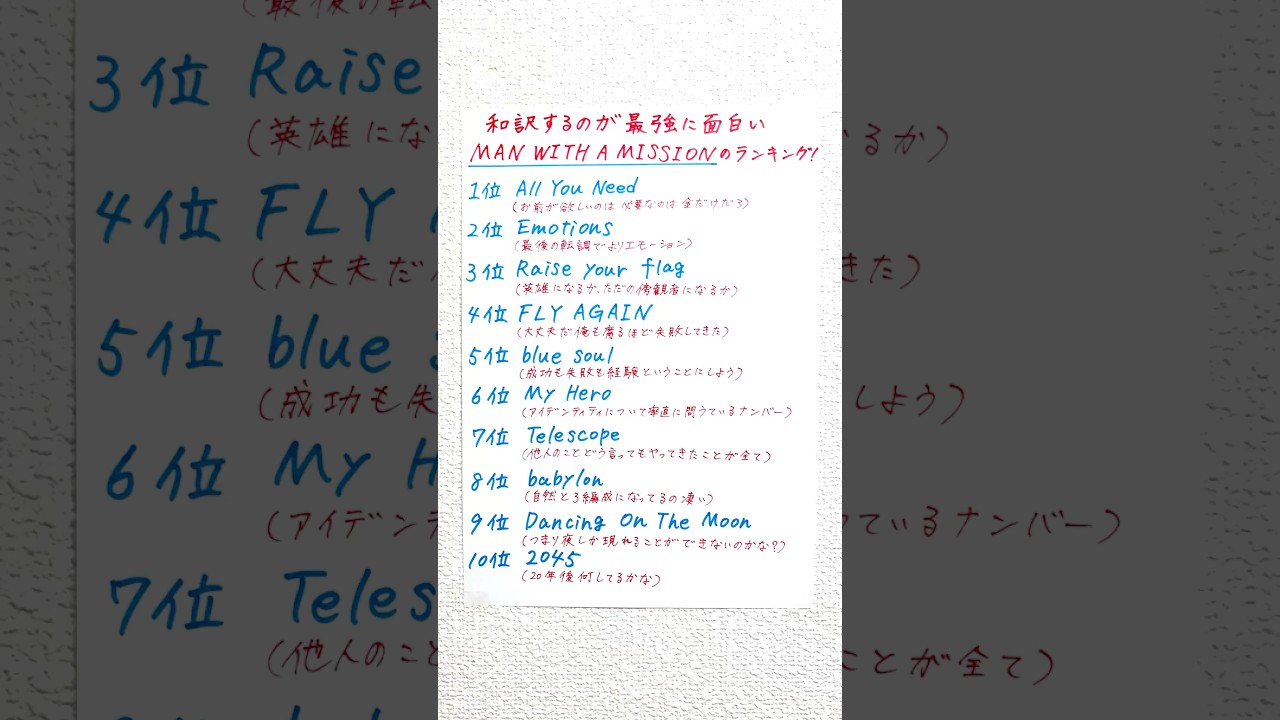 和訳するのが最強に面白い
MAN WITH A MISSIONのランキング!
1位 All You Need
(お前が欲しいのは 必要なのは 金だけだろ)
2位 Emotions
(最後の転調でよりエモーション)
3位 Raise your flag
(英雄になるか、ただの傍観者になるか)
4位 FLY AGAIN
(大丈夫だ俺も腐るほど失敗してきた)
5位 blue soul
(成功も失敗も経験ということにしよう)
6位 My Hero
(アイデンティティについて率直に問うているナンバー)
7位 Telescope
(他人のことどう言ってもやってきたことが全て)
8位 babylon
(自然と3編成になってるの凄い)
9位 Dancing On The Moon
(つまり夜しか現れることができないのかな?)
10位 2045
(20年後何してるかな)